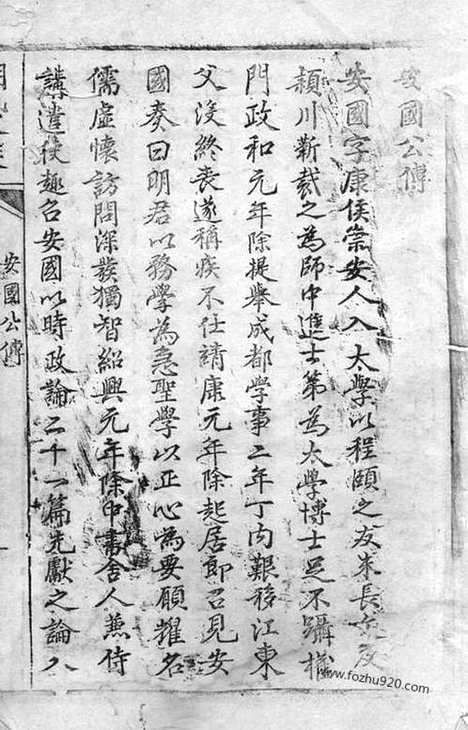 安國公傳
安國字康侯崇安人入太學以程頤之友朱長文及
潁川靳裁之為師中進士第為太學博士足不躡權
門政和元年除提舉成都學事二年丁內艱移江東
父沒終喪遂稱疾不仕靖康元年除起居郎召見安
國奏曰明君以務學為急聖學以正心為要願擢名
儒虛懷訪問深發獨智紹興元年除中書舍人兼侍
講遣使趣召安國以時政論二十一篇先獻之論入
安國公傳
www.fozhu920.com